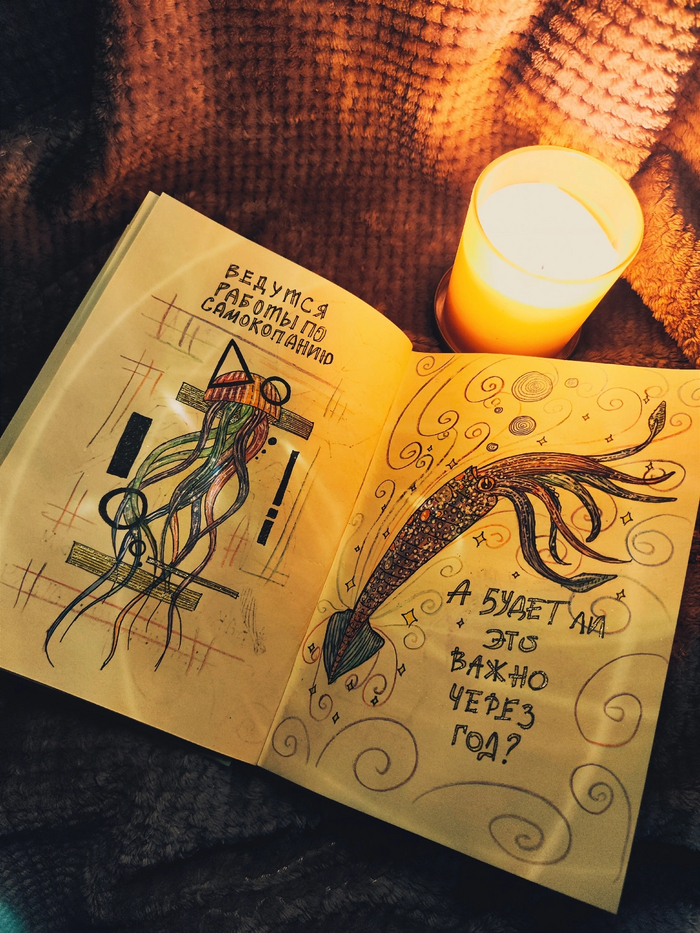 ВЕДУТСЯ
РАБОТЫ ПО
САМОКОПАНИЮ
А БУДЕТ ЛИ
ЭТО
ВАЖНО
ЧЕРЕЗ
ГОД?